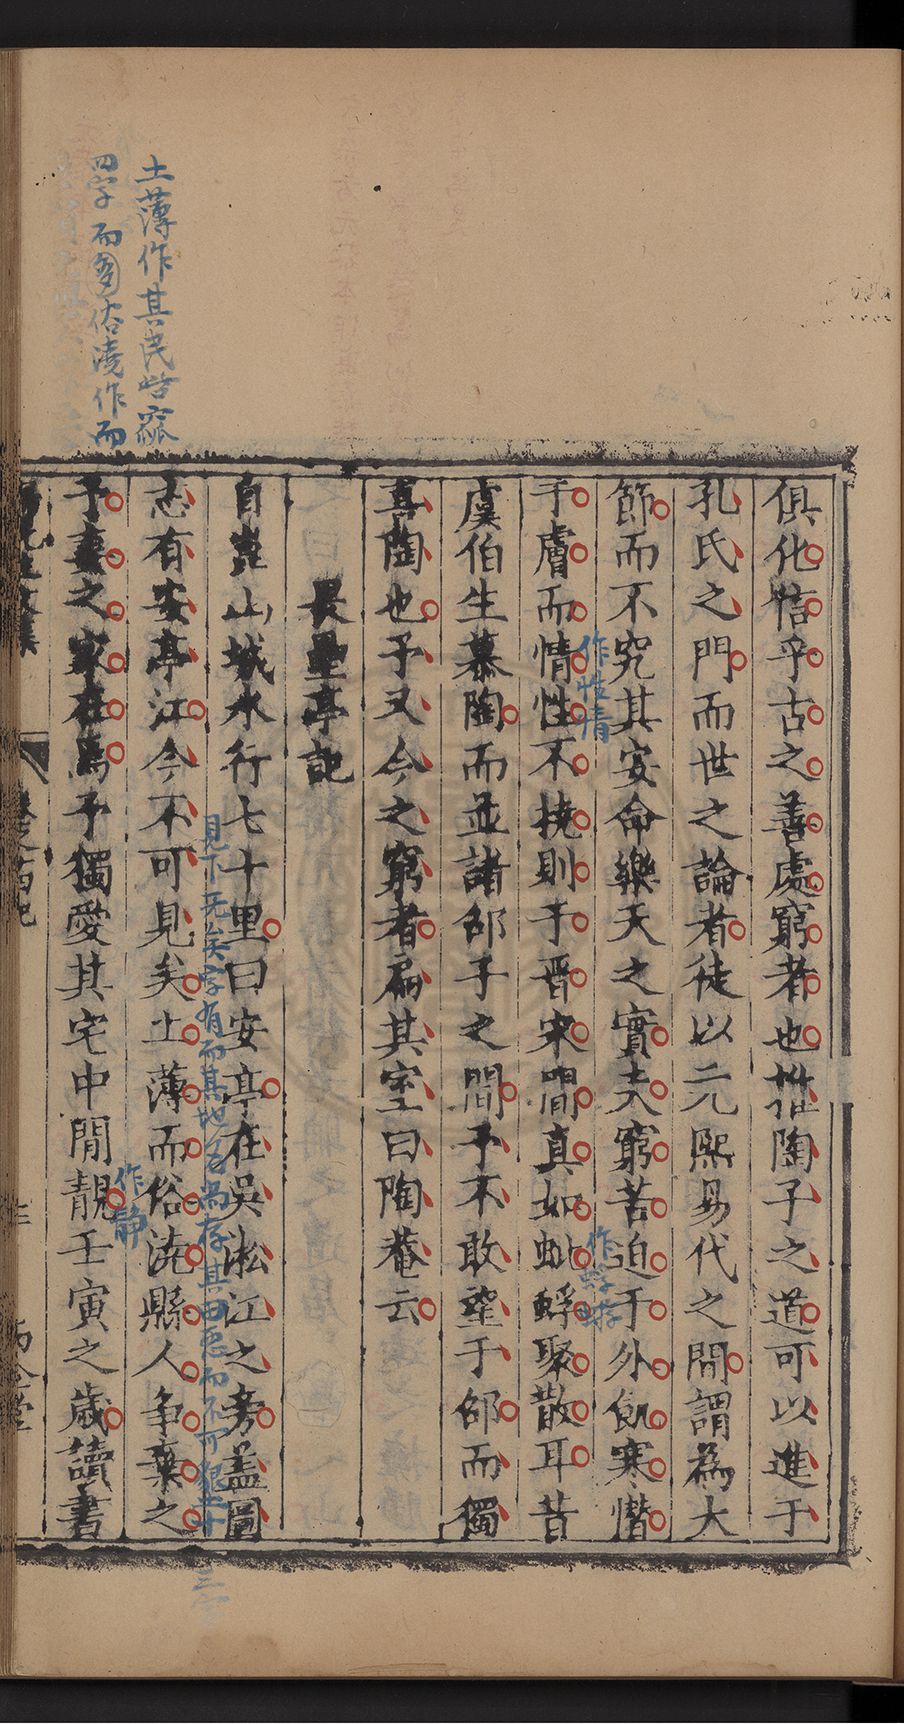 俱化恬乎古之善處窮者也推陶子之道可以進于
孔氏之門而世之論者徒以元熙易代之間謂為大
節而不究其安命樂天之實夫窮苦迫于外飢寒憯
于膚而情性不撓則于晋宋間真如蚍蜉聚散耳昔
虞伯生慕陶而並諸邵子之間予不敢望于邵而獨
喜陶也予又今之窮者扁其室曰陶菴云
畏壘亭記
自崑山城水行七十里曰安亭在吳淞江之旁盖圖
志有安亭江今不可見矣土薄而俗澆縣人争棄之
予妻之家在焉予獨愛其宅中閒靚壬寅之歲讀書
作性情
作蜉蝣
見下无矣字有而其地名尚存其田惡而不可
三字
作静
土薄作其民呰窳
四字而多俗澆作而